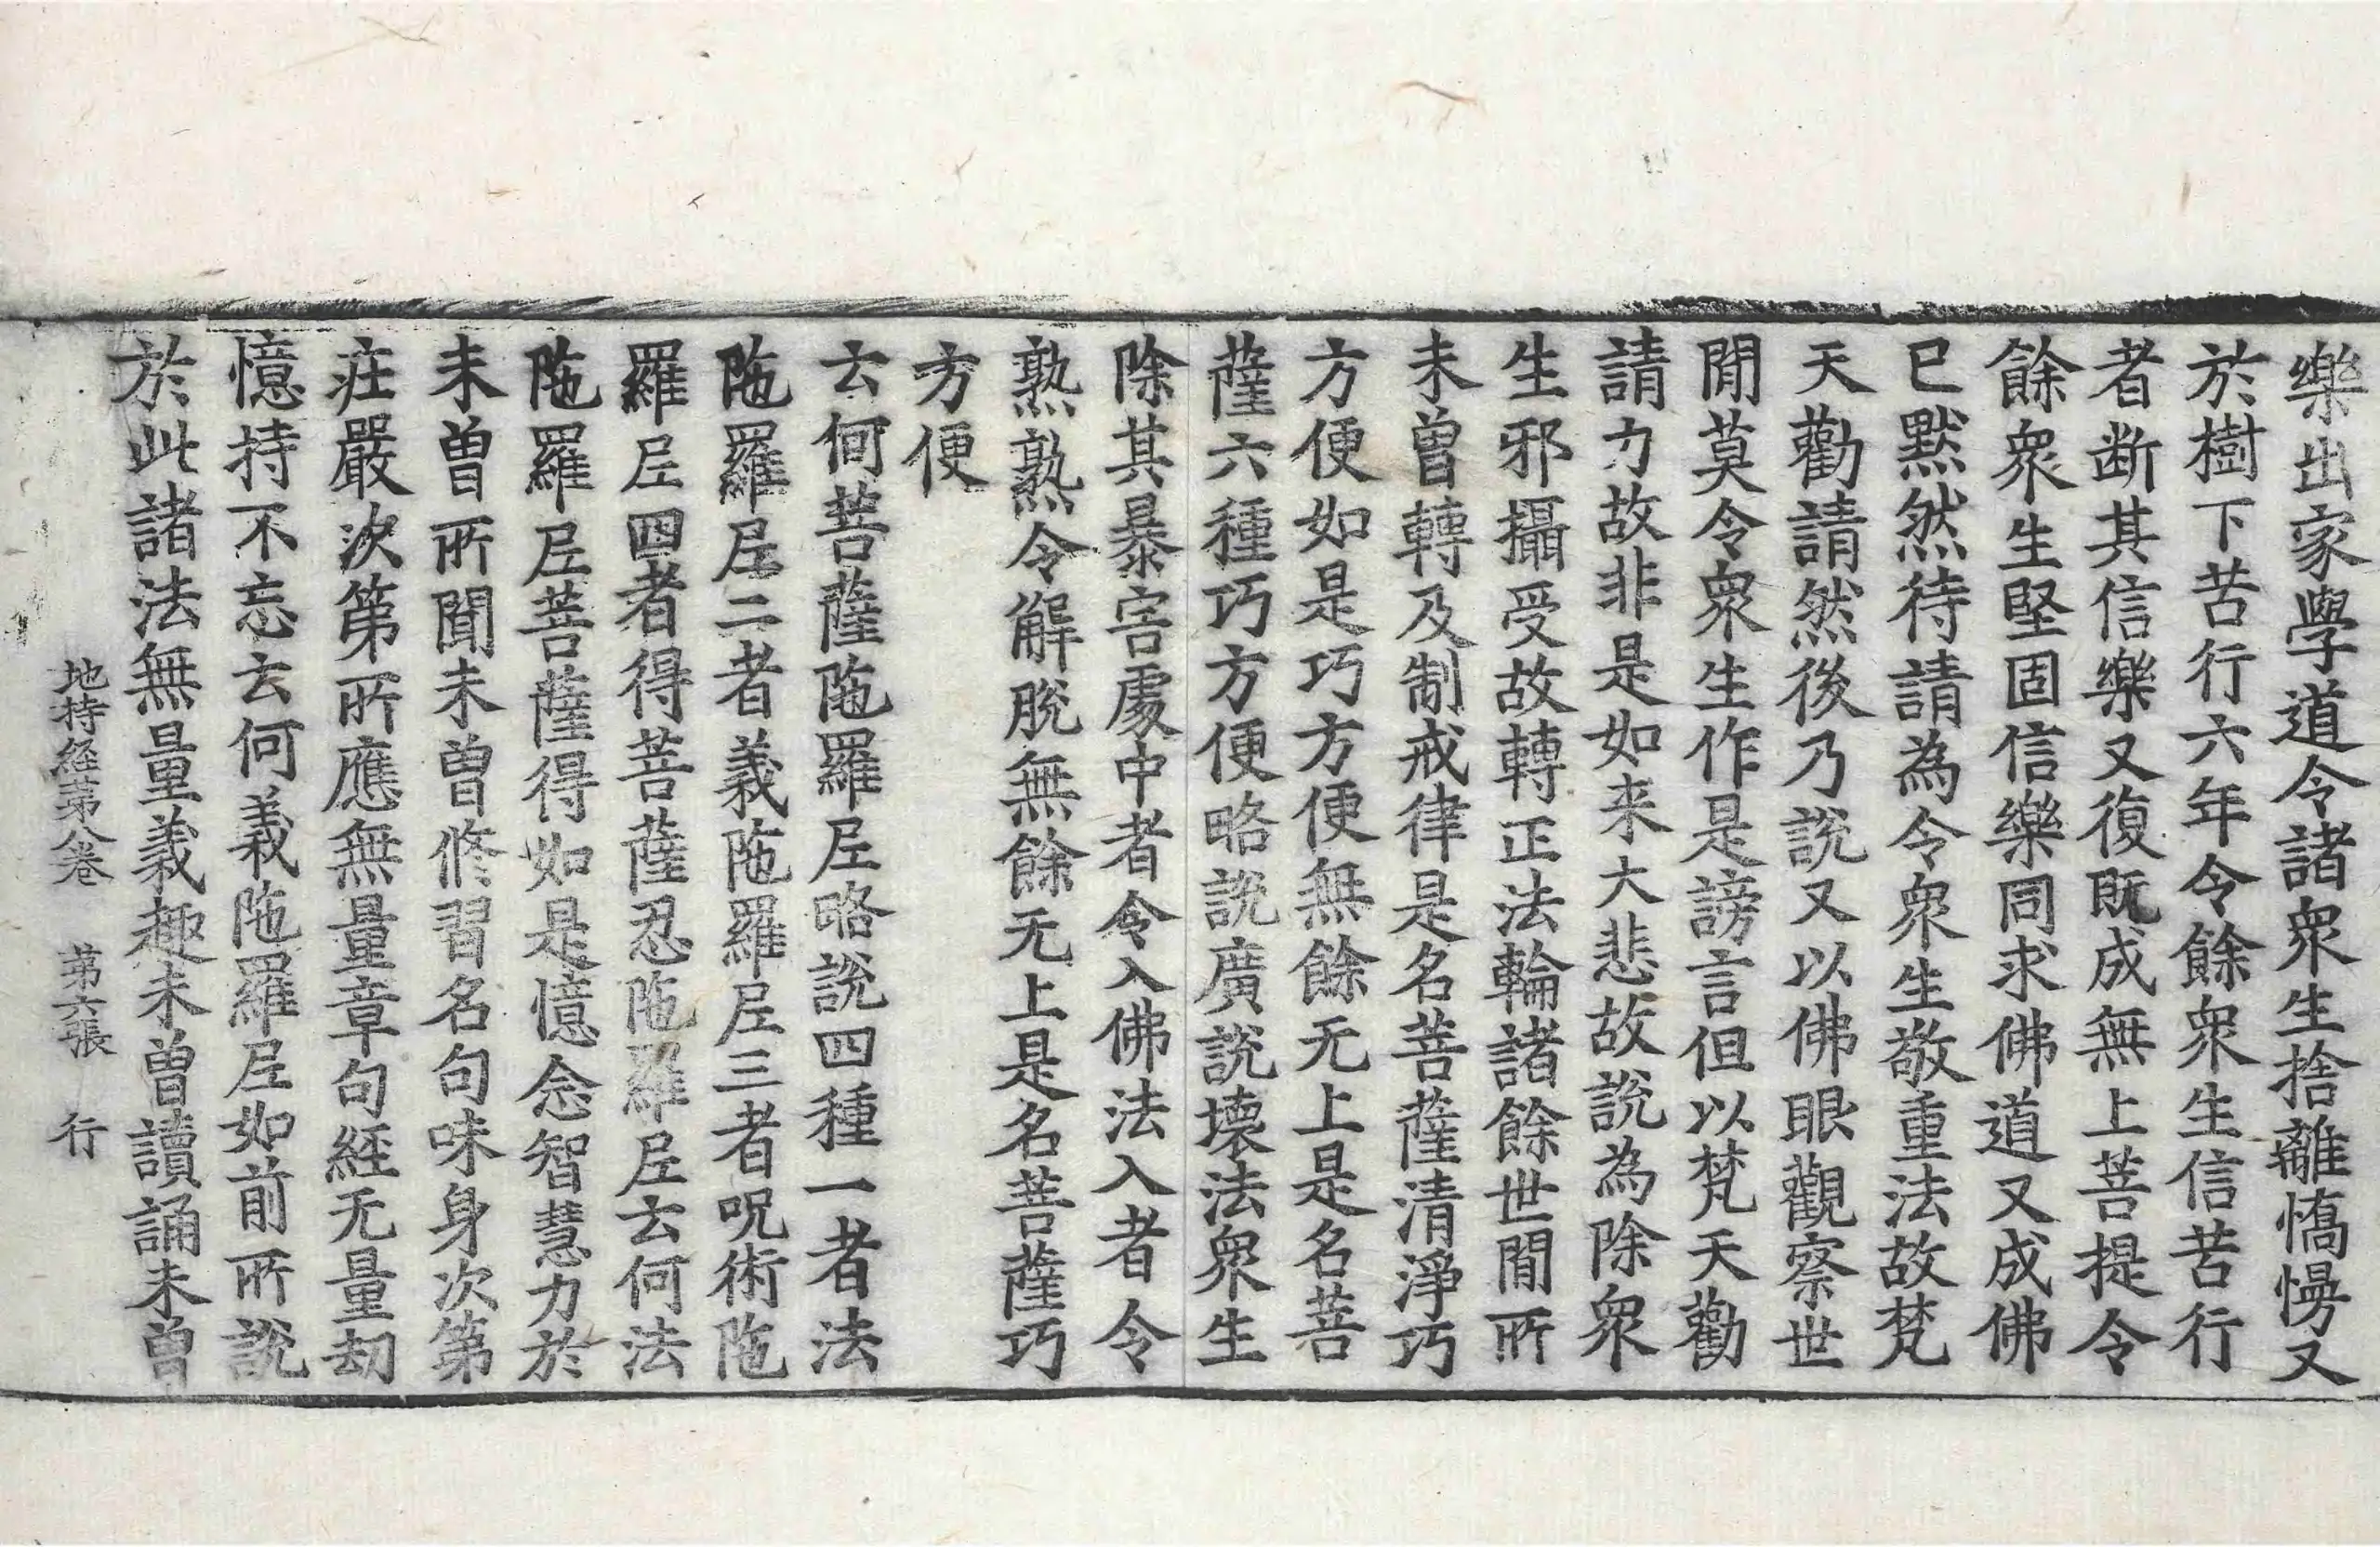 樂出家學道令諸衆生捨離憍慢又
於樹下苦行六年令餘衆生信苦行
者断其信樂又復既成無上菩提令
餘衆生堅固信樂同求佛道又成佛
已默然待請為令衆生敬重法故梵
天勸請然後乃說又以佛眼觀察世
閒莫令衆生作是謗言但以梵天勸
請力故非是如来大悲故說為除衆
生邪攝受故轉正法輪諸餘世閒所
未曾轉及制戒律是名菩薩清淨巧
方便如是巧方便無餘无上是名菩
薩六種巧方便略說廣說壞法衆生
除其暴害處中者令入佛法入者令
熟熟令解脫無餘无上是名菩薩巧
方便
云何菩薩陁羅𡰱略說四種一者法
陁羅𡰱二者義陁羅𡰱三者呪術陁
羅𡰱四者得菩薩忍陁羅𡰱云何法
陁羅𡰱菩薩得如是憶念智慧力於
未曾所聞未曾修習名句味身次第
莊嚴次第所應無量章句經无量劫
憶持不忘云何義陁羅𡰱如前所說
於此諸法無量義趣未曾讀誦未曾
地持経第八卷　第六張　行